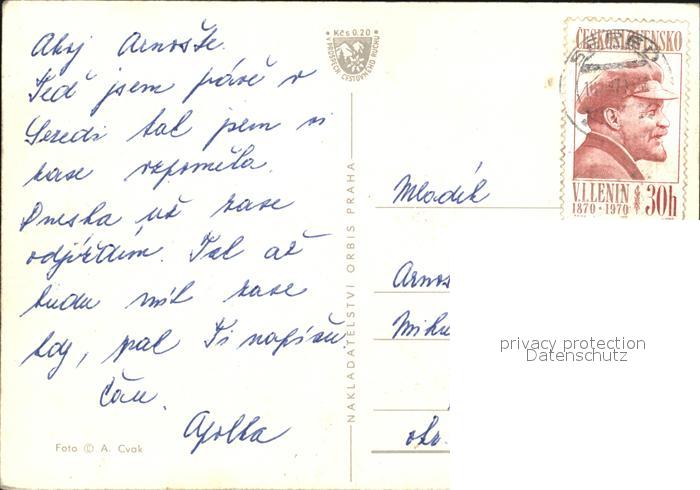 Ahoj Arnošte.
Teď jsem právě v
Seredi tak jsem si
zase vzpoměla.
Dneska už zase
odjíždím. Tak až
budu mít zase
kdy, pak Ti napíšu
Čau.
Foto © A. Cvok
Kčs 0.20
V PROSPĚCH CESTOVNÉHO RUCHU
NAKLADATELSTVÍ ORBIS PRAHA
ČESKOSLOVENSKO
V.I.LENIN
1870 · 1970
30h
Mladík
Arnoš
Miku
okr.
privacy protection
Datenschutz